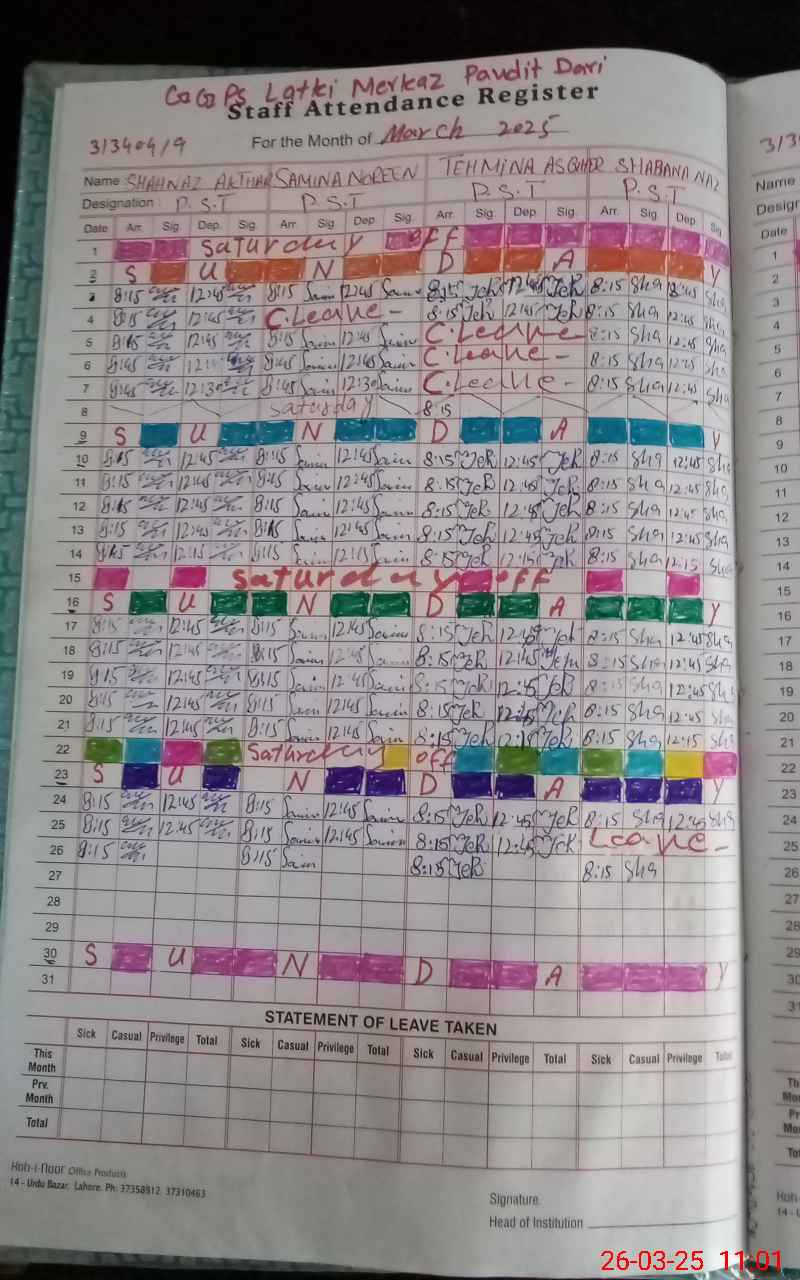 GGPS Latki Merkaz Pandit Dari
Staff Attendance Register
313404/9 For the Month of March 2025
Name SHAHNAZ AKTHAR SAMINA NOREEN TEHMINA ASGHER SHABANA NAZ
Designation : P.S.T P.S.T P.S.T P.S.T
Date Arr. Sig Dep. Sig. Arr. Sig. Dep Sig Arr. Sig Dep. Sig. Arr. Sig. Dep Sig
1 Saturday off
2 S U N D A Y
3 8:15 12:45 8:15 Sam 12:45 Sam 8:15 TeR 12:45 TeR 8:15 Sha 12:45 Sha
4 8:15 12:45 C.Leave - 8:15 TeR 12:45 TeR 8:15 Sha 12:45 Sha
5 8:15 12:45 8:15 Sam 12:45 Sam C.Leave 8:15 Sha 12:45 Sha
6 8:45 8:45 Sam 12:45 Sam C.Leave - 8:15 Sha 12:45 Sha
7 8:45 12:30 8:45 Sam 12:30 Sam C.Leave - 8:15 Sha 12:45 Sha
8 Saturday 8:15
9 S U N D A Y
10 8:15 12:45 8:15 Sam 12:45 Sam 8:15 TeR 12:45 TeR 8:15 Sha 12:45 Sha
11 8:15 12:45 8:15 Sam 12:45 Sam 8:15 TeR 12:45 TeR 8:15 Sha 12:45 Sha
12 8:15 12:45 8:15 Sam 12:45 Sam 8:15 TeR 12:45 TeR 8:15 Sha 12:45 Sha
13 8:15 12:45 8:15 Sam 12:45 Sam 8:15 TeR 12:45 TeR 8:15 Sha 12:45 Sha
14 8:15 12:15 8:15 Sam 12:15 Sam 8:15 TeR 12:15 TeR 8:15 Sha 12:15 Sha
15 Saturday off
16 S U N D A Y
17 8:15 12:45 8:15 Sam 12:45 Sam 8:15 TeR 12:45 TeR 8:15 Sha 12:45 Sha
18 8:15 12:45 8:15 Sam 12:45 Sam 8:15 TeR 12:45 TeR 8:15 Sha 12:45 Sha
19 8:15 12:45 8:15 Sam 12:45 Sam 8:15 TeR 12:45 TeR 8:15 Sha 12:45 Sha
20 8:15 12:45 8:15 Sam 12:45 Sam 8:15 TeR 12:45 TeR 8:15 Sha 12:45 Sha
21 8:15 12:45 8:15 Sam 12:45 Sam 8:15 TeR 12:15 TeR 8:15 Sha 12:15 Sha
22 Saturday off
23 S U N D A Y
24 8:15 12:45 8:15 Sam 12:45 Sam 8:15 TeR 12:45 TeR 8:15 Sha 12:45 Sha
25 8:15 12:45 8:15 Sam 12:45 Sam 8:15 TeR 12:45 TeR Leave -
26 8:15 8:15 Sam 8:15 TeR 8:15 Sha
27
28
29
30 S U N D A Y
31
STATEMENT OF LEAVE TAKEN
Sick Casual Privilege Total Sick Casual Privilege Total Sick Casual Privilege Total Sick Casual Privilege Total
This Month
Prv. Month
Total
Koh-i-Noor Office Products
14 - Urdu Bazar, Lahore. Ph: 37358912 37310463
Signature.
Head of Institution
26-03-25 11:01